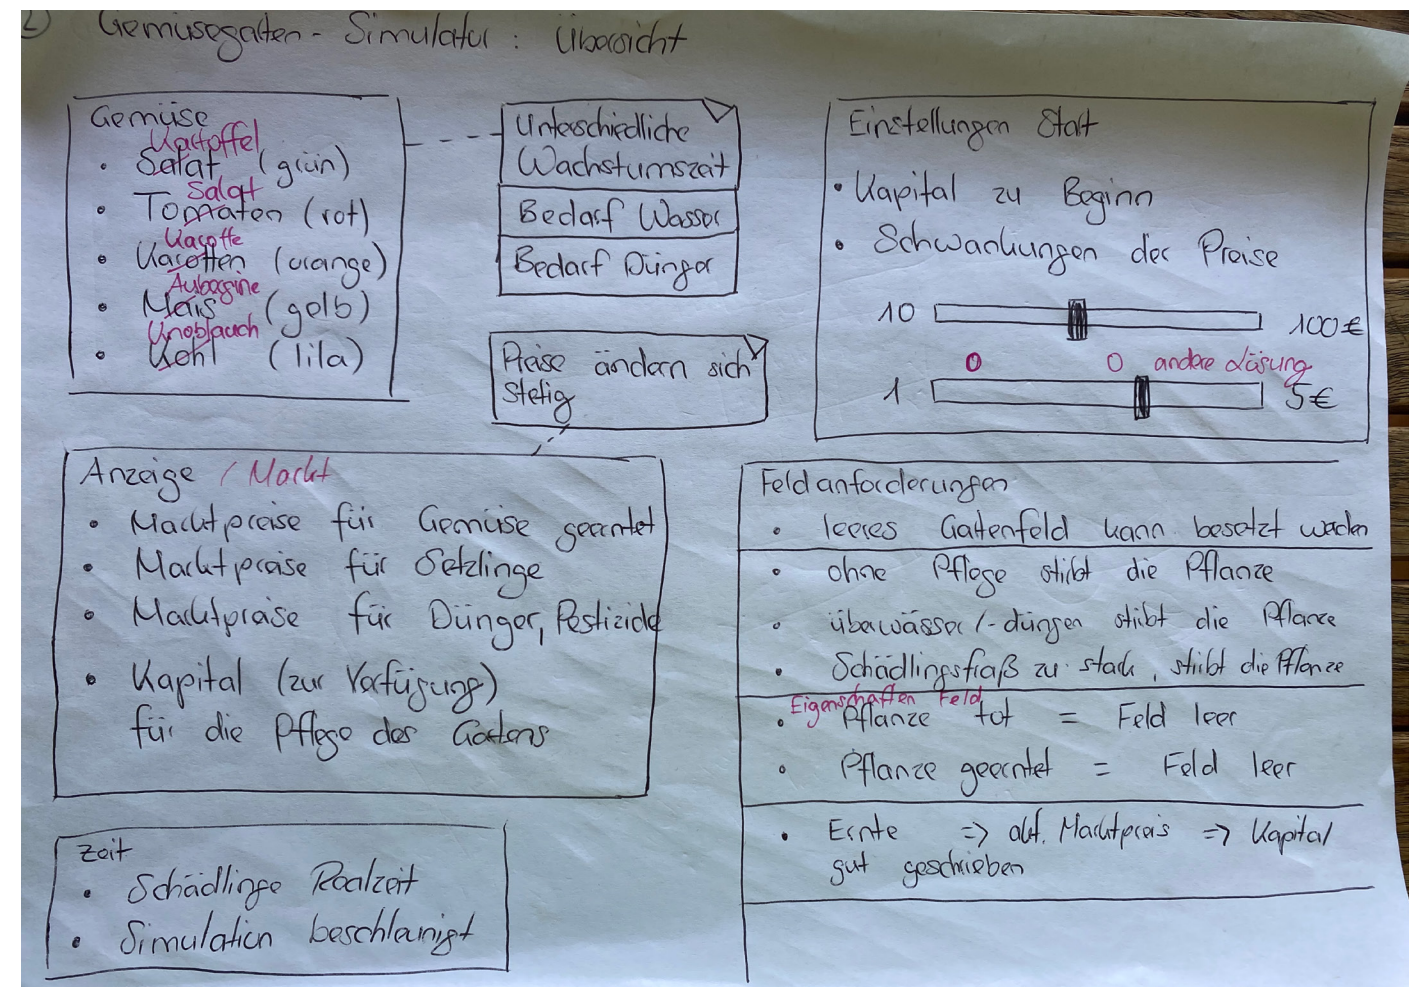 2)
Gemüsegarten - Simulator : Übersicht
Gemüse
Kartoffel
• Salat (grün)
Salat
• Tomaten (rot)
Karotte
• Karotten (orange)
Aubergine
• Mais (gelb)
Knoblauch
• Kohl (lila)
Unterschiedliche
Wachstumszeit
Bedarf Wasser
Bedarf Dünger
Preise ändern sich
stetig
Einstellungen Start
• Kapital zu Beginn
• Schwankungen der Preise
10 100€
0 0 andere Lösung
1 5€
Anzeige / Markt
• Marktpreise für Gemüse geerntet
• Marktpreise für Setzlinge
• Marktpreise für Dünger, Pestizide
• Kapital (zur Verfügung)
für die Pflege des Gartens
Feldanforderungen
• leeres Gartenfeld kann besetzt werden
• ohne Pflege stirbt die Pflanze
• überwässer/-düngen stirbt die Pflanze
• Schädlingsfraß zu stark, stirbt die Pflanze
Eigenschaften Feld
• Pflanze tot = Feld leer
• Pflanze geerntet = Feld leer
• Ernte => akt. Marktpreis => Kapital
gut geschrieben
Zeit
• Schädlinge Realzeit
• Simulation beschleunigt